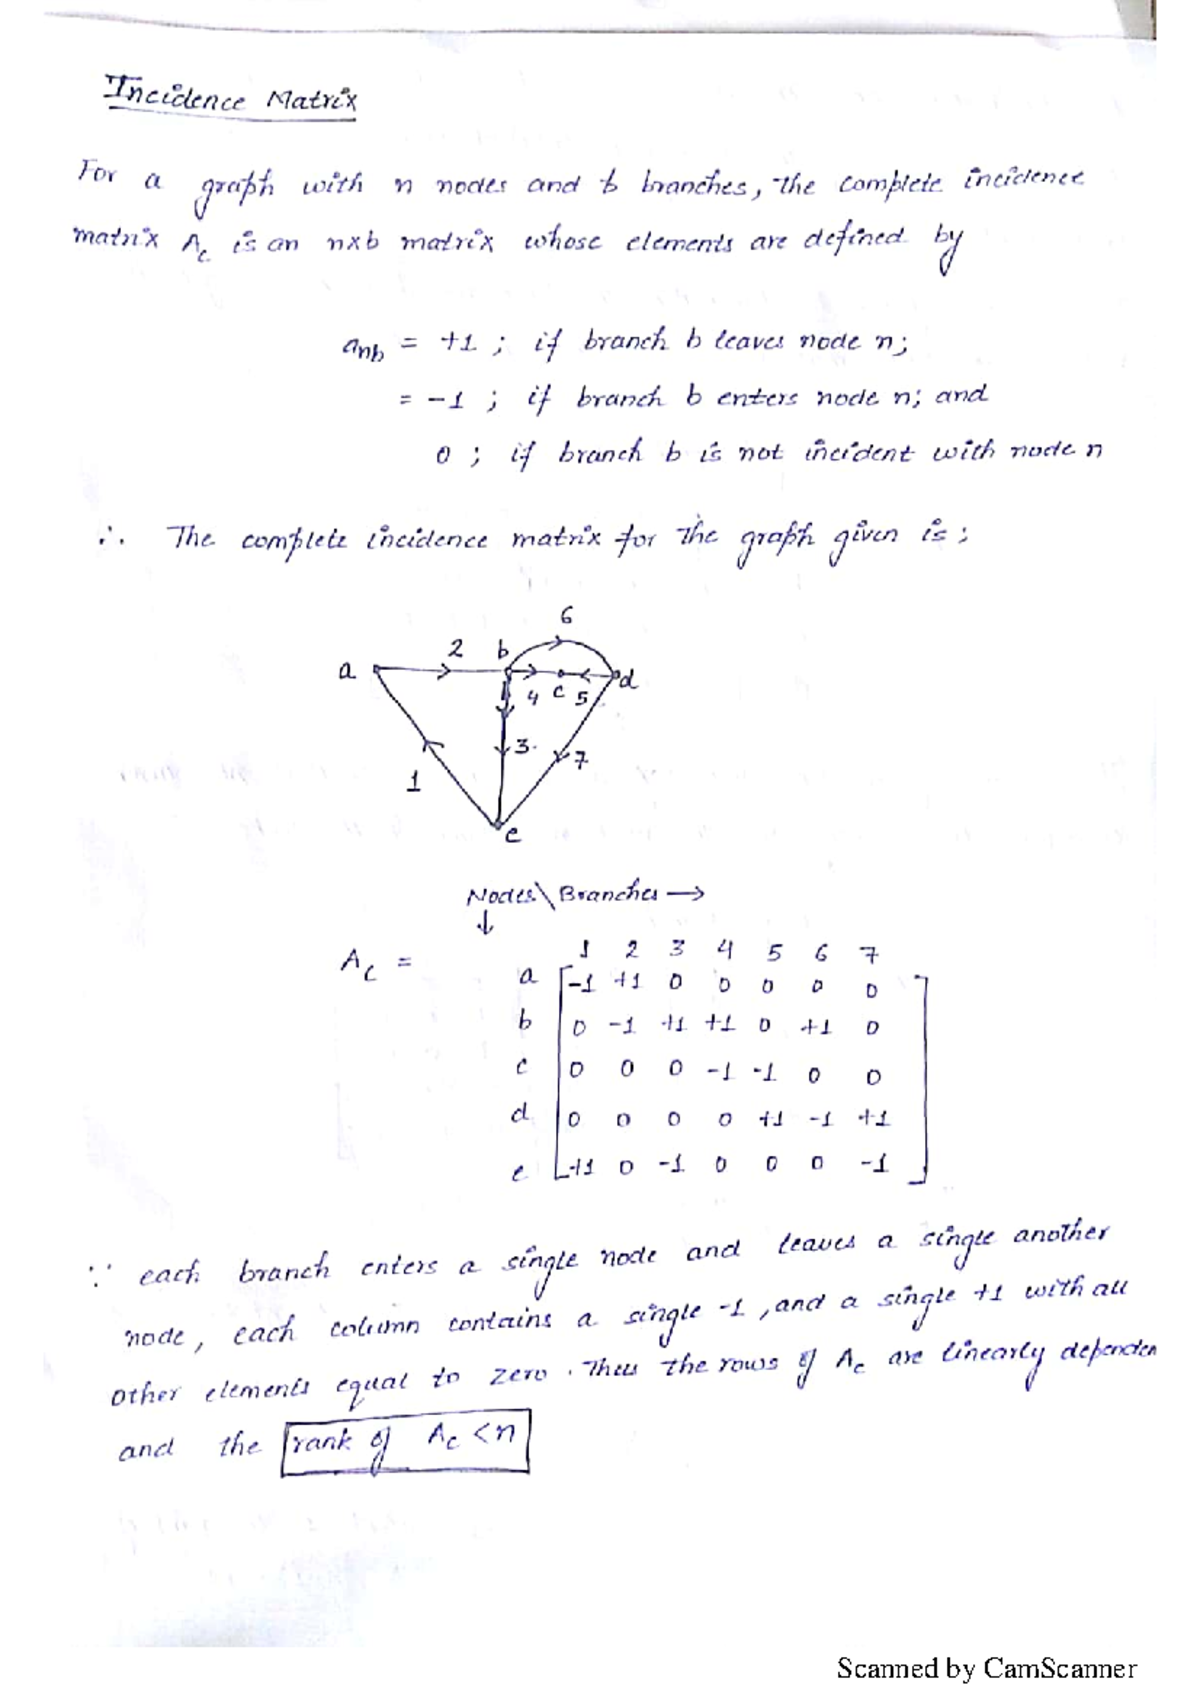 Incidence Matrix
For a graph with n nodes and b branches, the complete incidence
matrix Ac is an n×b matrix whose elements are defined by
anb = +1 ; if branch b leaves node n;
= -1 ; if branch b enters node n; and
0 ; if branch b is not incident with node n
∴ The complete incidence matrix for the graph given is :
6
2 b
a d
4 c 5
3
7
1
e
Nodes\Branches →
↓
1 2 3 4 5 6 7
Ac =
a -1 +1 0 0 0 0 0
b 0 -1 +1 +1 0 +1 0
c 0 0 0 -1 -1 0 0
d 0 0 0 0 +1 -1 +1
e +1 0 -1 0 0 0 -1
∵ each branch enters a single node and leaves a single another
node, each column contains a single -1, and a single +1 with all
other elements equal to zero. Thus the rows of Ac are linearly dependen
and the rank of Ac < n
Scanned by CamScanner